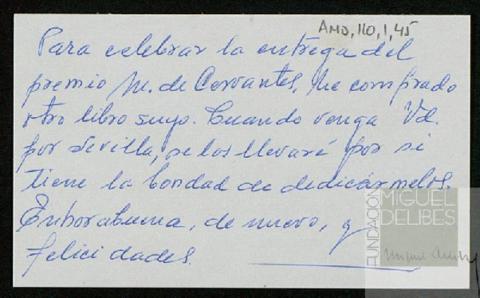 AMD,110,1,45
Para celebrar la entrega del
premio M. de Cervantes, he comprado
otro libro suyo. Cuando venga Vd.
por Sevilla, se los llevaré por si
tiene la bondad de dedicármelos.
Enhorabuena, de nuevo, y
felicidades.
FUNDACIÓN
MIGUEL
DELIBES